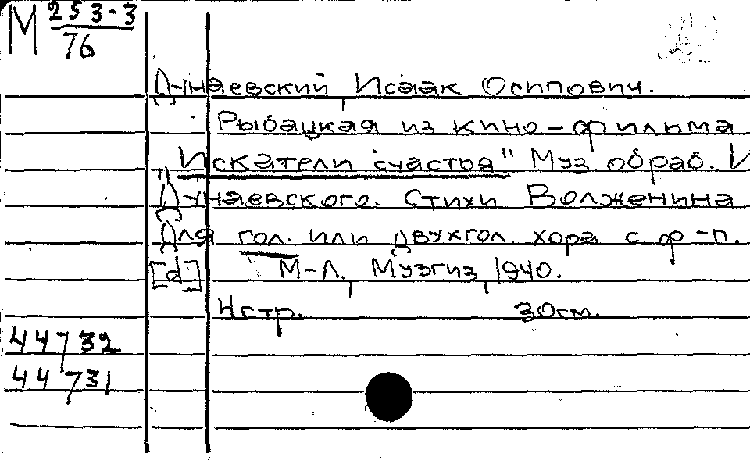 М 253-3
76
Дунаевский, Исаак Осипович.
Рыбацкая из кино-фильма
"Искатели счастья" Муз обраб. И
Дунаевского. Стихи Волженина
Для гол. или двухгол. хора с ф-п.
[d] М-Л, Музгиз, 1940.
4стр. 30см.
44732
44731